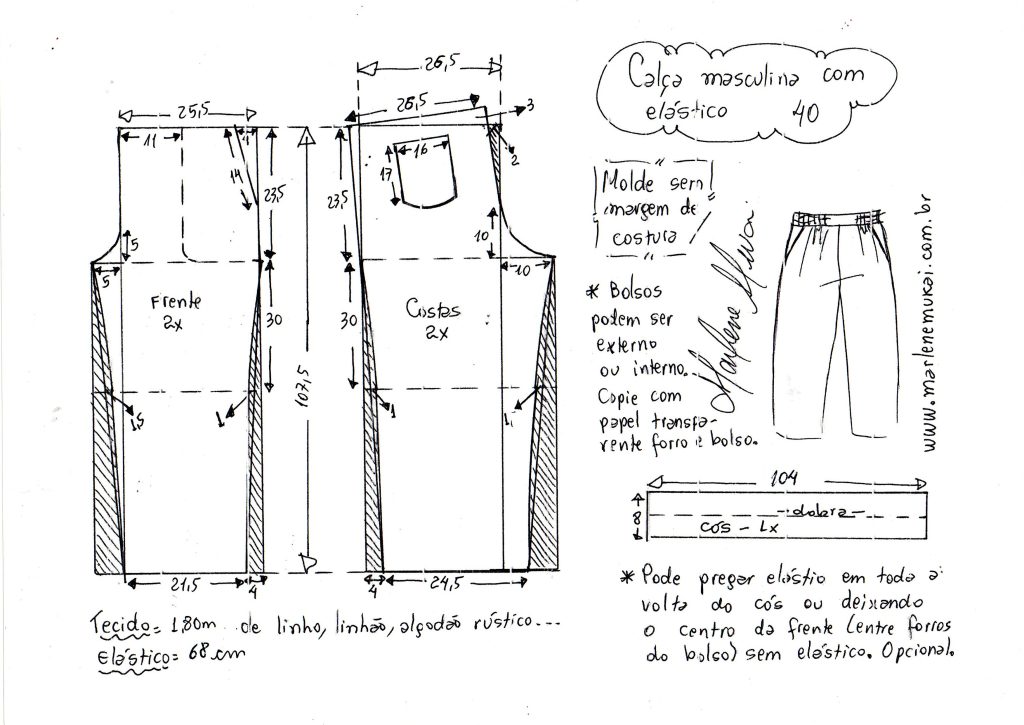 Calça masculina com
elástico 40
Molde sem
margem de
costura
* Bolsos
podem ser
externo
ou interno.
Copie com
papel transpa-
rente forro e bolso.
Marlene Mukai
www.marlenemukai.com.br
25,5
11
4
14
23,5
5
5
Frente
2x
30
1,5
1
21,5
4
107,5
26,5
26,5
3
2
16
17
23,5
10
10
Costas
2x
30
1
1,
4
24,5
104
8
dobra
cós - 1x
* Pode pregar elástio em toda a
volta do cós ou deixando
o centro da frente (entre forros
do bolso) sem elástico. Opcional.
Tecido = 1,80m de linho, linhão, algodão rústico...
Elástico = 68 cm